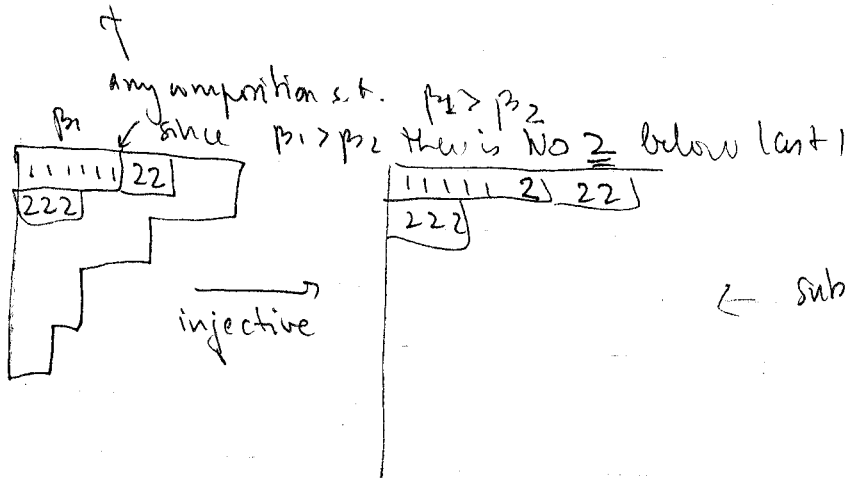 any composition s.t. β1 > β2
β1 since β1 > β2 there is NO 2 below last 1
1 1 1 1 1 1 22
222
1 1 1 1 1 2 22
222
injective
← sub